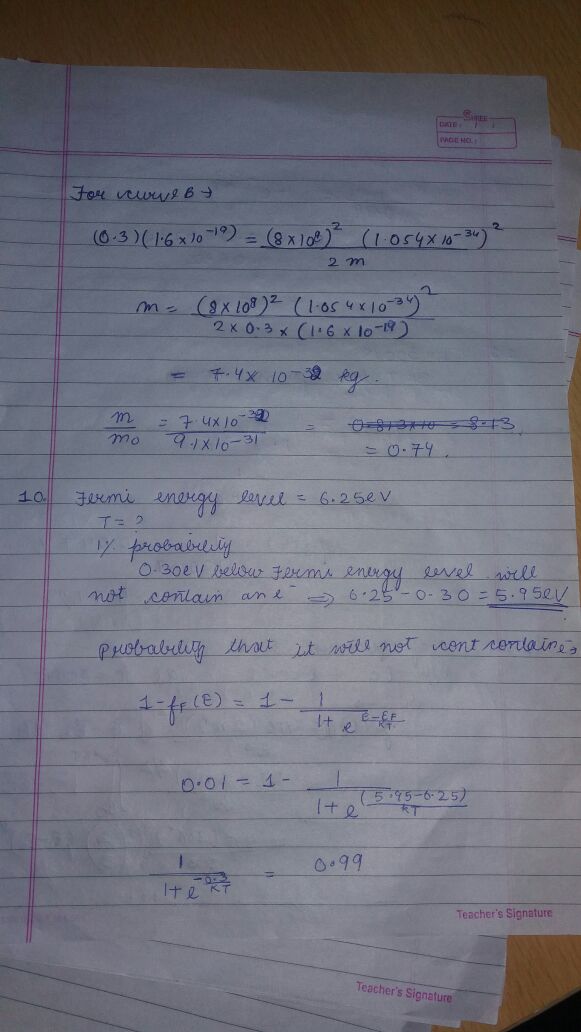 SHREE
DATE: / /
PAGE NO.:
For curve B →
(0.3)(1.6×10⁻¹⁹) = (8×10⁸)² (1.054×10⁻³⁴)² / 2m
m = (8×10⁸)² (1.054×10⁻³⁴)² / 2×0.3×(1.6×10⁻¹⁹)
= 7.4× 10⁻³² kg.
m/m₀ = 7.4×10⁻³² / 9.1×10⁻³¹ = 0.813×10 = 8.13
= 0.74.
10. Fermi energy level = 6.25eV
T = ?
1% probability
0.30eV below Fermi energy level will
not contain an e⁻ ⇒ 6.25-0.30 = 5.95eV
Probability that it will not cont contain e⁻
1-f_F(E) = 1 - 1 / 1+e^(E-E_F / KT)
0.01 = 1 - 1 / 1+e^((5.95-6.25) / KT)
1 / 1+e^(-0.3 / KT) = 0.99
Teacher's Signature
Teacher's Signature